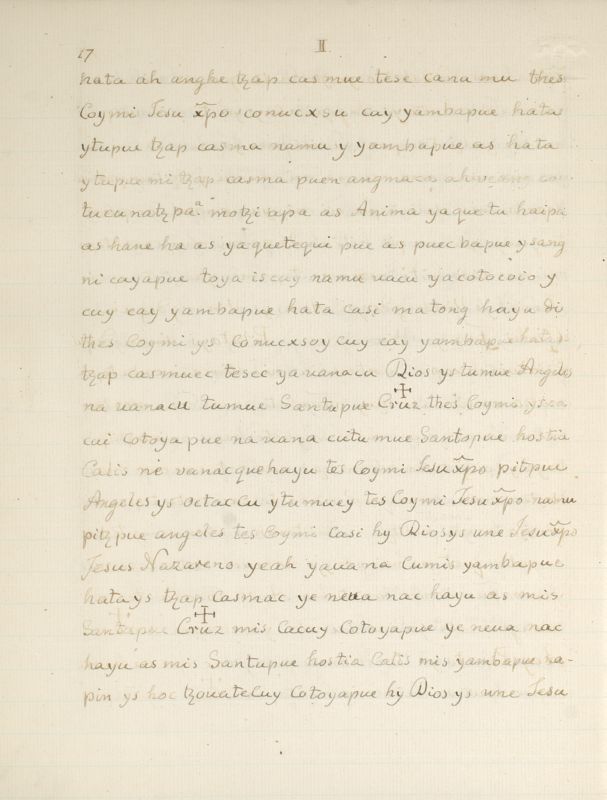 17
II.
hata ah angke tzap cas mue tese cana mu thes
Coymi Jesu xp̃o conucxsu cay yambapue hata
ytupue tzap casma namu y yambapue as hata
ytupue mi tzap casma puen angmaca
tucunatzpaª motzi apa as Anima yaque tu haipa
as hane ha as yaquetequi pue as puec bapue ysang
ni cayapue toya is cuy namu uacu yacotocoio y
cuy cay yambapue hata casi matong hayu di
thes Coymi ys Conucxsoy cuy cay yambapue hatas
tzap casmuec tesec ya uanacu Dios ystumue Angeles
na uanacu tumue Santupue Cruz thes Coymi
cui cotoya pue na uana cuitu mue Santopue hostia
Calis ne vanacquehayu tes Coymi Jesu xp̃o pitpue
Angeles ys octaccu ytumuey tes Coymi Jesu xp̃o namu
pitzpue angeles tes Coymi casi hy Diosys une Jesu xp̃o
Jesus Nazareno yeah yaua na Cumis yambapue
hata ys tzap Casmac ye neua nac hayu as mis
Santapue Cruz mis Cacuy Cotoyapue ye neua nac
hayu as mis Santupue hostia Calis mis yambapue na-
pin ys hoc tzouatecuy Cotoyapue hy Dios ys une Jesu